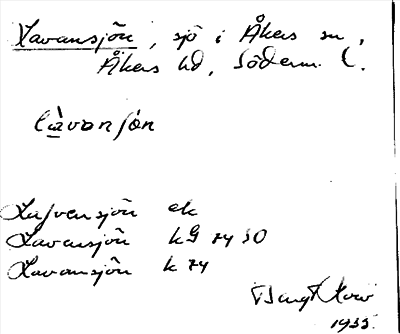 Lavansjön, sjö i Åkers sn,
Åkers hd, Söderm. l.
làvanʃön
Lafvensjön ek
Lavansjön kG 74 SO
Lavansjön k 74
Bengt
1935.